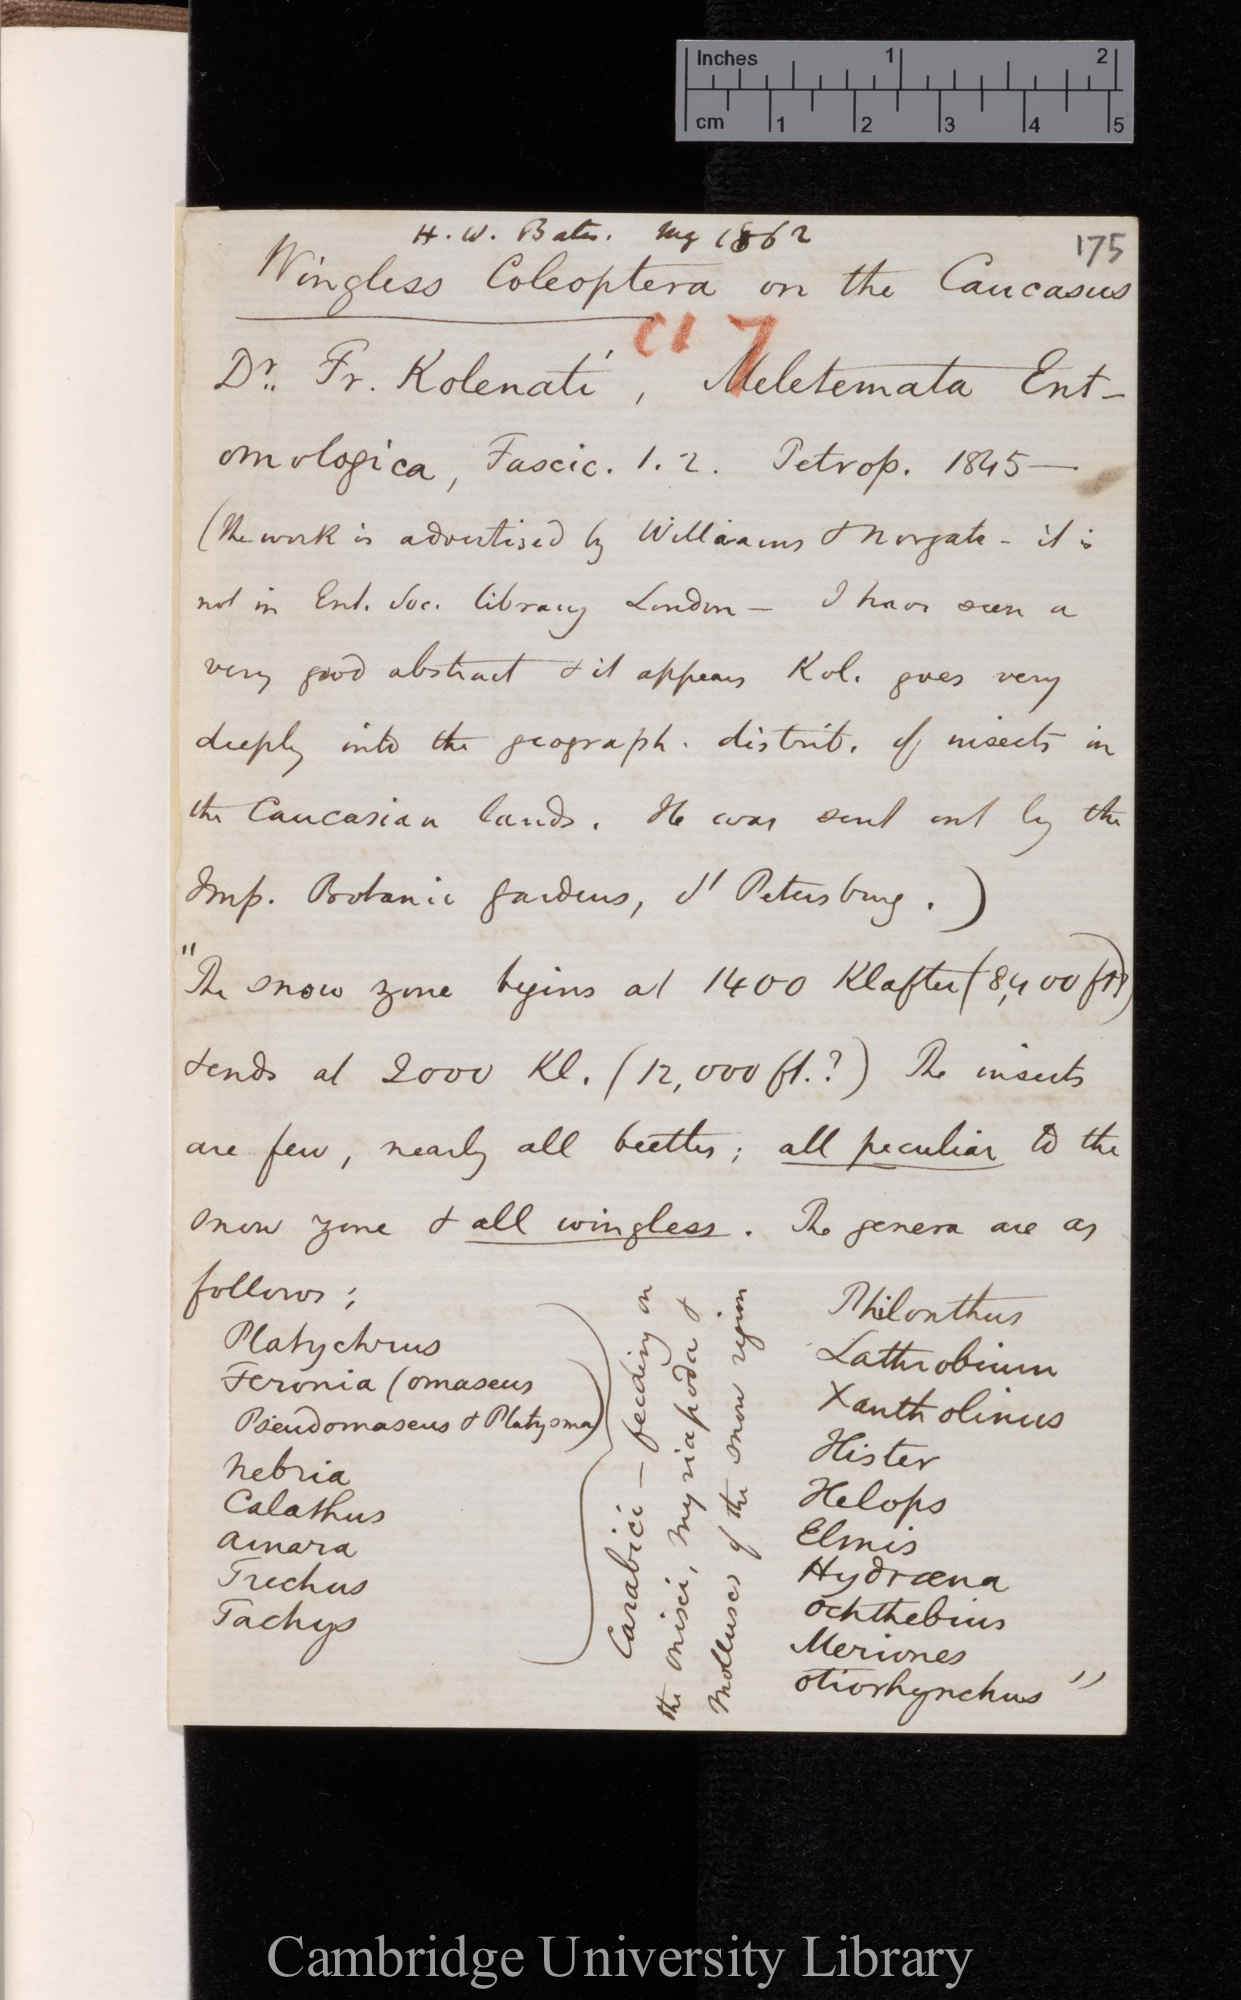 Inches 1 2
cm 1 2 3 4 5
H. W. Bates. 1862
175
Wingless Coleoptera on the Caucasus
Dr. Fr. Kolenati, Meletemata Ent-
omologica, Fascic. 1. 2. Petrop. 1845—
(The work is advertised by Williams & Norgate - it is
not in Ent. Soc. library London — I have seen a
very good abstract & it appears Kol. goes very
deeply into the geograph. distrib. of insects in
the Caucasian lands. He was sent out by the
Imp. Botanic gardens, St Petersburg.)
"The snow zone begins at 1400 Klafter (8,400 ft?)
& ends at 2000 Kl. (12,000 ft.?) The insects
are few, nearly all beetles; all peculiar to the
snow zone & all wingless. The genera are as
follows;
Platychrus
Feronia (omaseus
Pseudomaseus & Platysma)
Nebria
Calathus
Amara
Trechus
Tachys
Carabici — feeding on
the onisci, myriapoda &
Molluscs of the snow region
Philonthus
Lathrobium
Xantholinus
Hister
Helops
Elmis
Hydræna
Ochthebius
Meriones
otiorhynchus"
Cambridge University Library